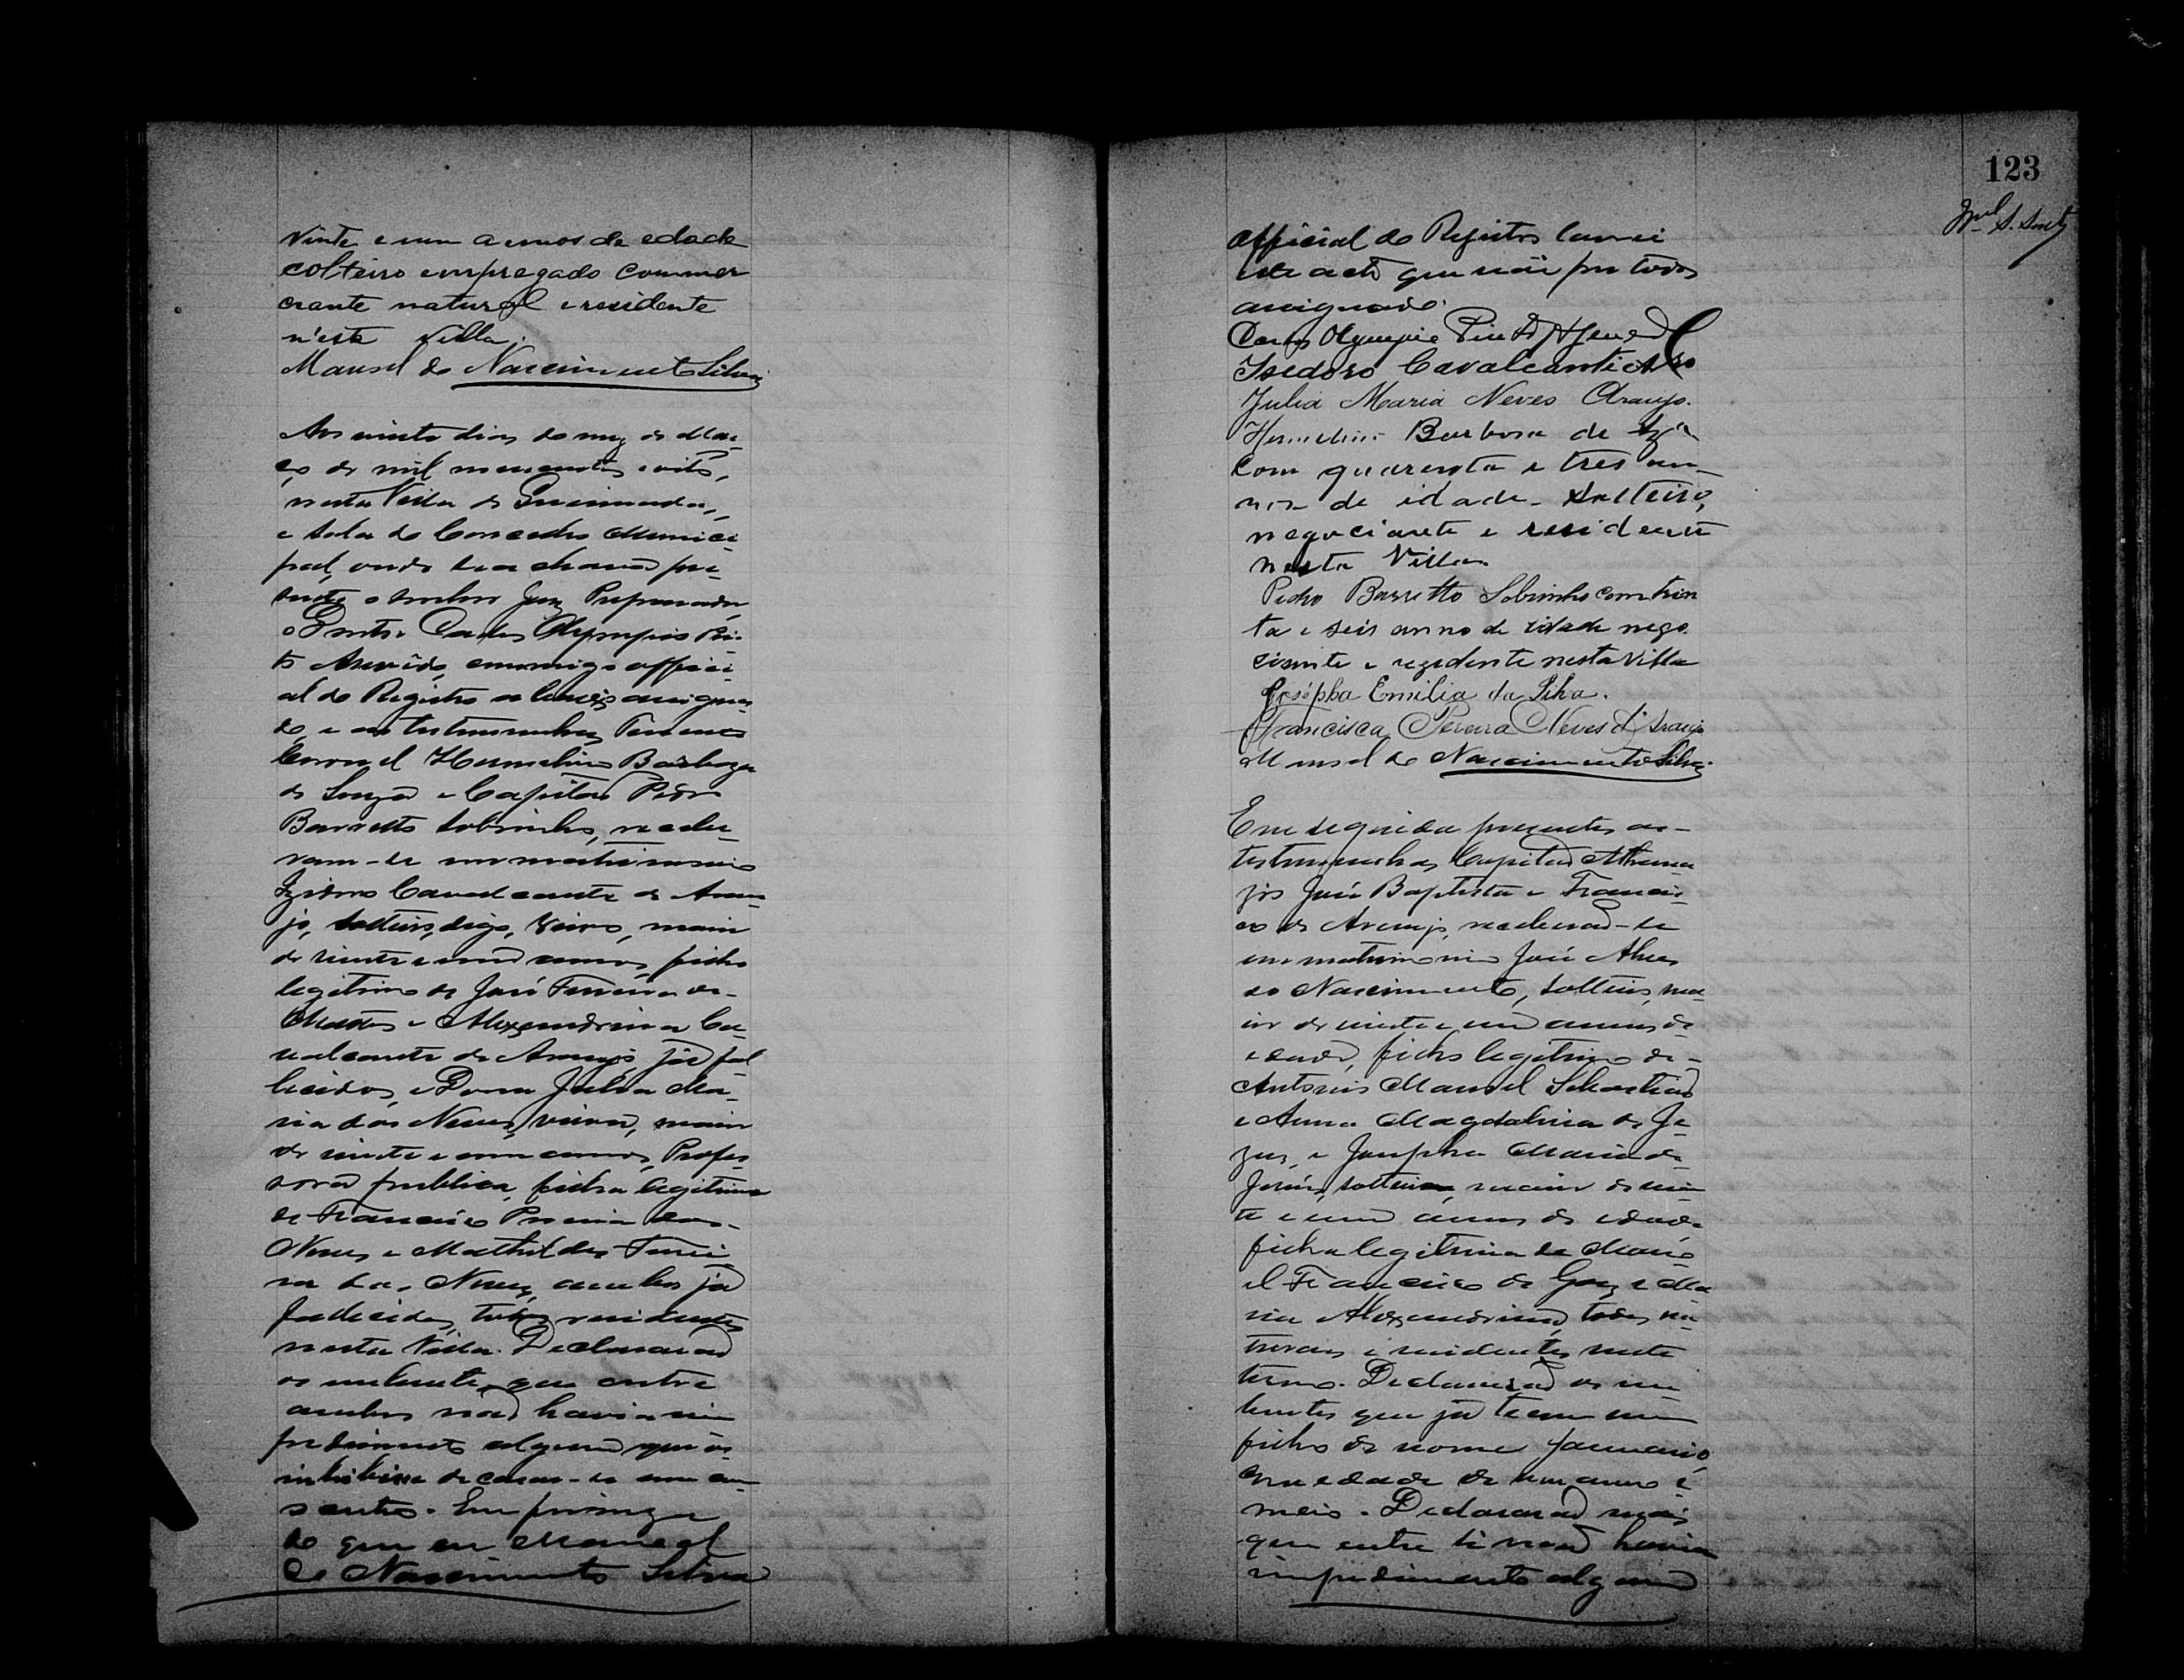 Vinte e um annos de edade
solteiro empregado commer
ciante natural e residente
n'esta villa.
Manoel do Nascimento Silva
Aos vinte dias do mez de Mar-
ço de mil novecentos e oito,
nesta Villa de Queimadas,
e sala do Conselho Munici-
pal, onde se achava pre-
sente o senhor Juiz Preparador
o Carlos Olympio Pin-
to Azevêdo, commigo offici-
al do Registro abaixo assigna-
do, e as testemunhas Tenente
Coronel Hermelino Barboza
de Souza e Capitão Pedro
Barretto Sobrinho, recebe-
ram-se em matrimonio
Izidoro Cavalcante de Arau-
jo, solteiro, digo, viuvo, maior
de vinte e um annos, filho
legitimo de José Ferreira de
Mattos e Alexandrina Ca-
valcante de Araujo já fal
lecidos, e Dona Julia Ma-
ria das Neves, viuva, maior
de vinte e um annos, Profes-
sora publica, filha legitima
de Francisco Pereira das
Neves e Mathildes
das Neves, ambos já
fallecidos, todos residentes
nesta Villa. Declararão
os nubentes, que entre
ambos não havia im-
pedimento algum que os
inhibisse de casar-se um
Em firmeza
do que eu Manoel
do Nascimento Silva
123
official do Registro lavrei
este acto que vai por todos
assignado.
Carlos Olympio Pinto d'Azevedo
Isidoro Cavalcanti
Julia Maria Neves Araujo.
Hermelino Barbosa de Sza
com quarenta e tres an-
nos de idade solteiro,
negociante e residente
nesta Villa.
Pedro Barretto Sobrinho com trin
ta e seis anno de idade nego
ciante e rezidente nesta villa
Josépha Emilia da Silva.
Francisca Pereira Neves d'Araujo
Manoel do Nascimento Silva
Em seguida presentes as
testemunhas Capitão Athana
zio José Baptista e Francis-
co de Araujo, receberão-se
em matrimonio José Alves
do Nascimento, solteiro, ma-
ior de vinte e um annos de
edade, filho legitimo de
Antonio Manoel Sebastião
e Anna Magdalena de Je-
zus, e Josepha Maria de
Jesus, solteira, maior de vin-
te e um annos de edade
filha legitima de Mano
el Francisco de e Ma
ria Alexandrina, todos na-
turaes e residentes neste
termo. Declararão os nu-
bentes que já teem um
filho de nome Januario,
com edade de um anno e
meio. Declararão mais
que entre si não havia
impedimento algum